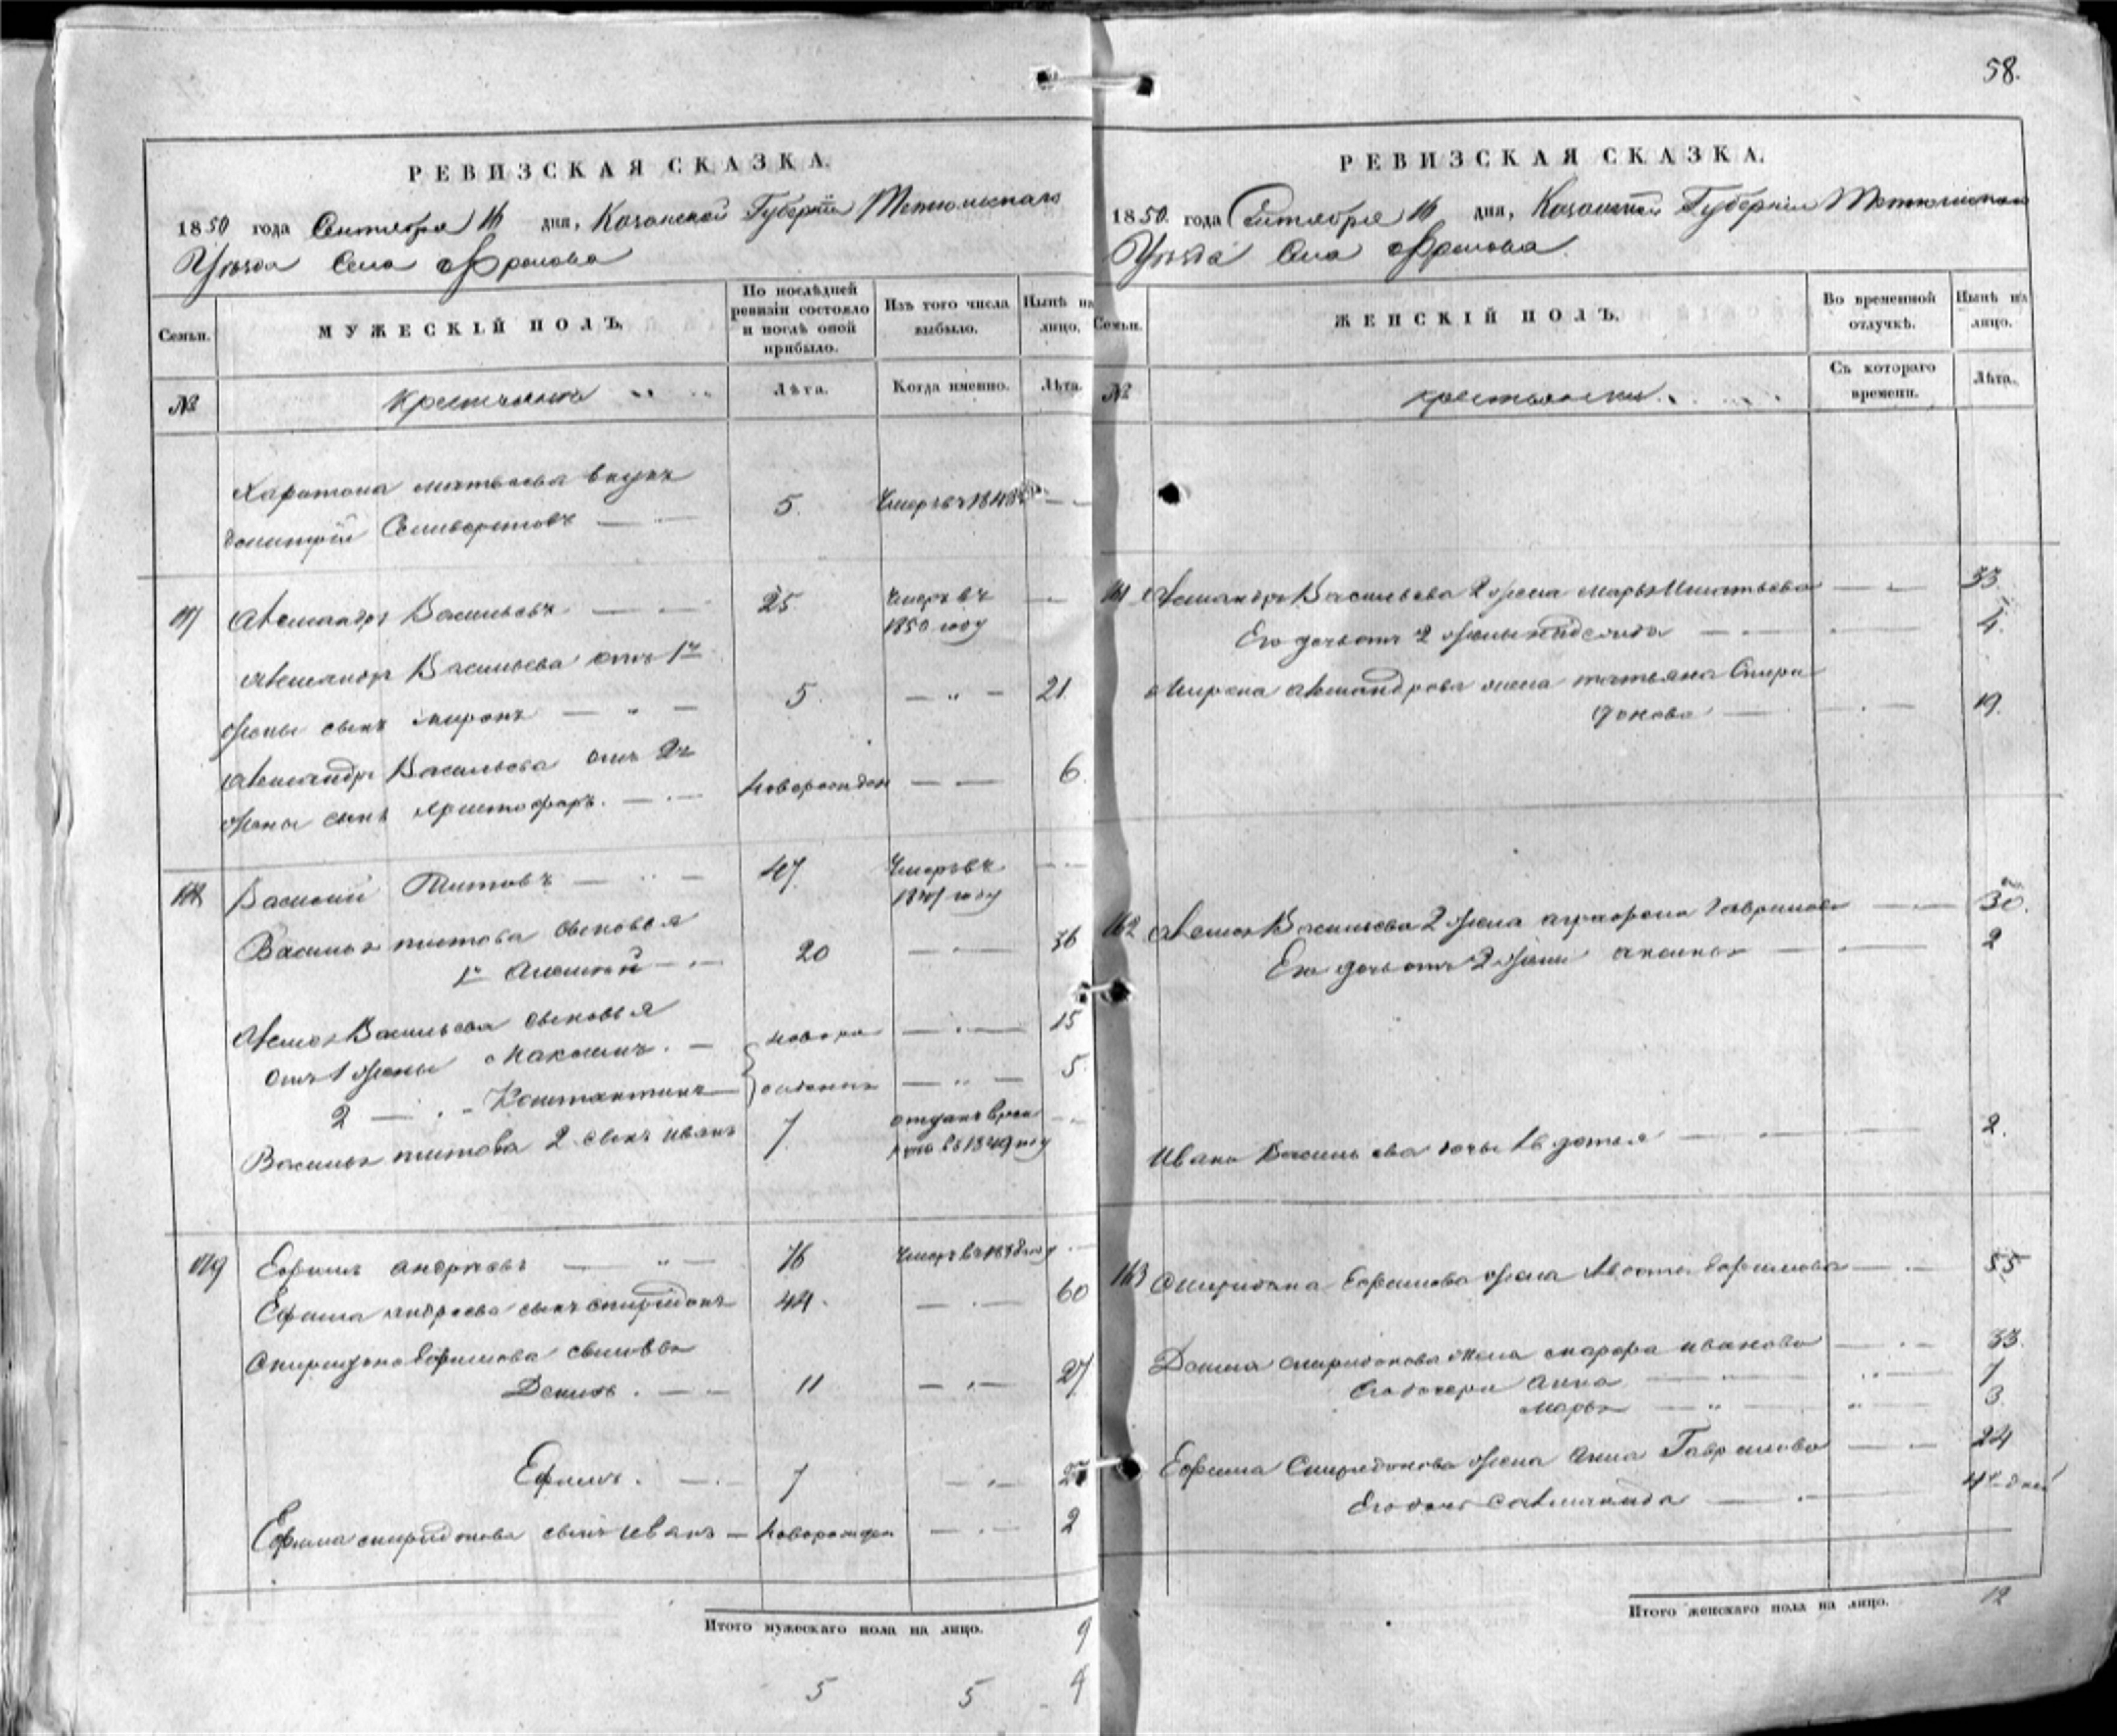 58.
РЕВИЗСКАЯ СКАЗКА.
1850 года Сентября 16 дня, Казанской Губерніи Тетюшскаго
Уѣзда Села Фролова
Семьи. МУЖЕСКІЙ ПОЛЪ. По послѣдней ревизіи состояло и послѣ оной прибыло. Изъ того числа выбыло. Нынѣ на лицо.
№ Крестьянъ Лѣта. Когда именно. Лѣта.
Харитона Матвѣева внукъ
Дмитрій 5. Умеръ въ
Александръ Васильевъ 25 Умеръ въ
1850 году
Александра Васильева отъ 1й
жены сынъ Миронъ 5. 21.
Александра Васильева отъ 2й
жены сынъ Христофоръ. новорожден 6.
Василий Титовъ 47 Умеръ въ
году
Василья Титова сыновья
1й Алексѣй 20 36
Алексѣя Васильева сыновья 15
отъ 1 жены Максимъ. новоро
2 Константинъ жденны 5.
Василья Титова 2 сынъ Иванъ 7. отданъ врек
руты въ 1849 году
Ефимъ Андреевъ 76 Умеръ въ
Ефима Андреева сынъ Спиридонъ 44. 60
Спиридона Ефимова сыновья
Денисъ. 11 27
Ефимъ. 7
Ефима Спиридонова сынъ Иванъ новорожден 2
Итого мужескаго пола на лицо. 9
5 5
РЕВИЗСКАЯ СКАЗКА.
1850. года Сентября 16 дня, Казанской Губерніи Тетюшскаго
Уѣзда Села Фролова
Семьи. ЖЕНСКІЙ ПОЛЪ. Во временной отлучкѣ. Нынѣ на лицо.
№ крестьянски. Съ котораго времени. Лѣта.
161 Александра Васильева 2 жена Марья Игнатьева 33.
Его дочь отъ 2 жены 4.
Мирона Александрова жена Татьяна Спири
донова 19.
162 Алексѣя Васильева 2 жена Аграфена Гаврилова 30.
Его дочь отъ 2 жены Аксинья 2
Ивана Васильева дочь Авдотья 2.
163 Спиридона Ефимова жена Ефимова 55
Дениса Спиридонова жена Марфа Иванова 33.
Его дочери Анна 7
Марья 3.
Ефима Спиридонова жена Анна Гаврилова 24
Его дочь
Итого женскаго пола на лицо. 12